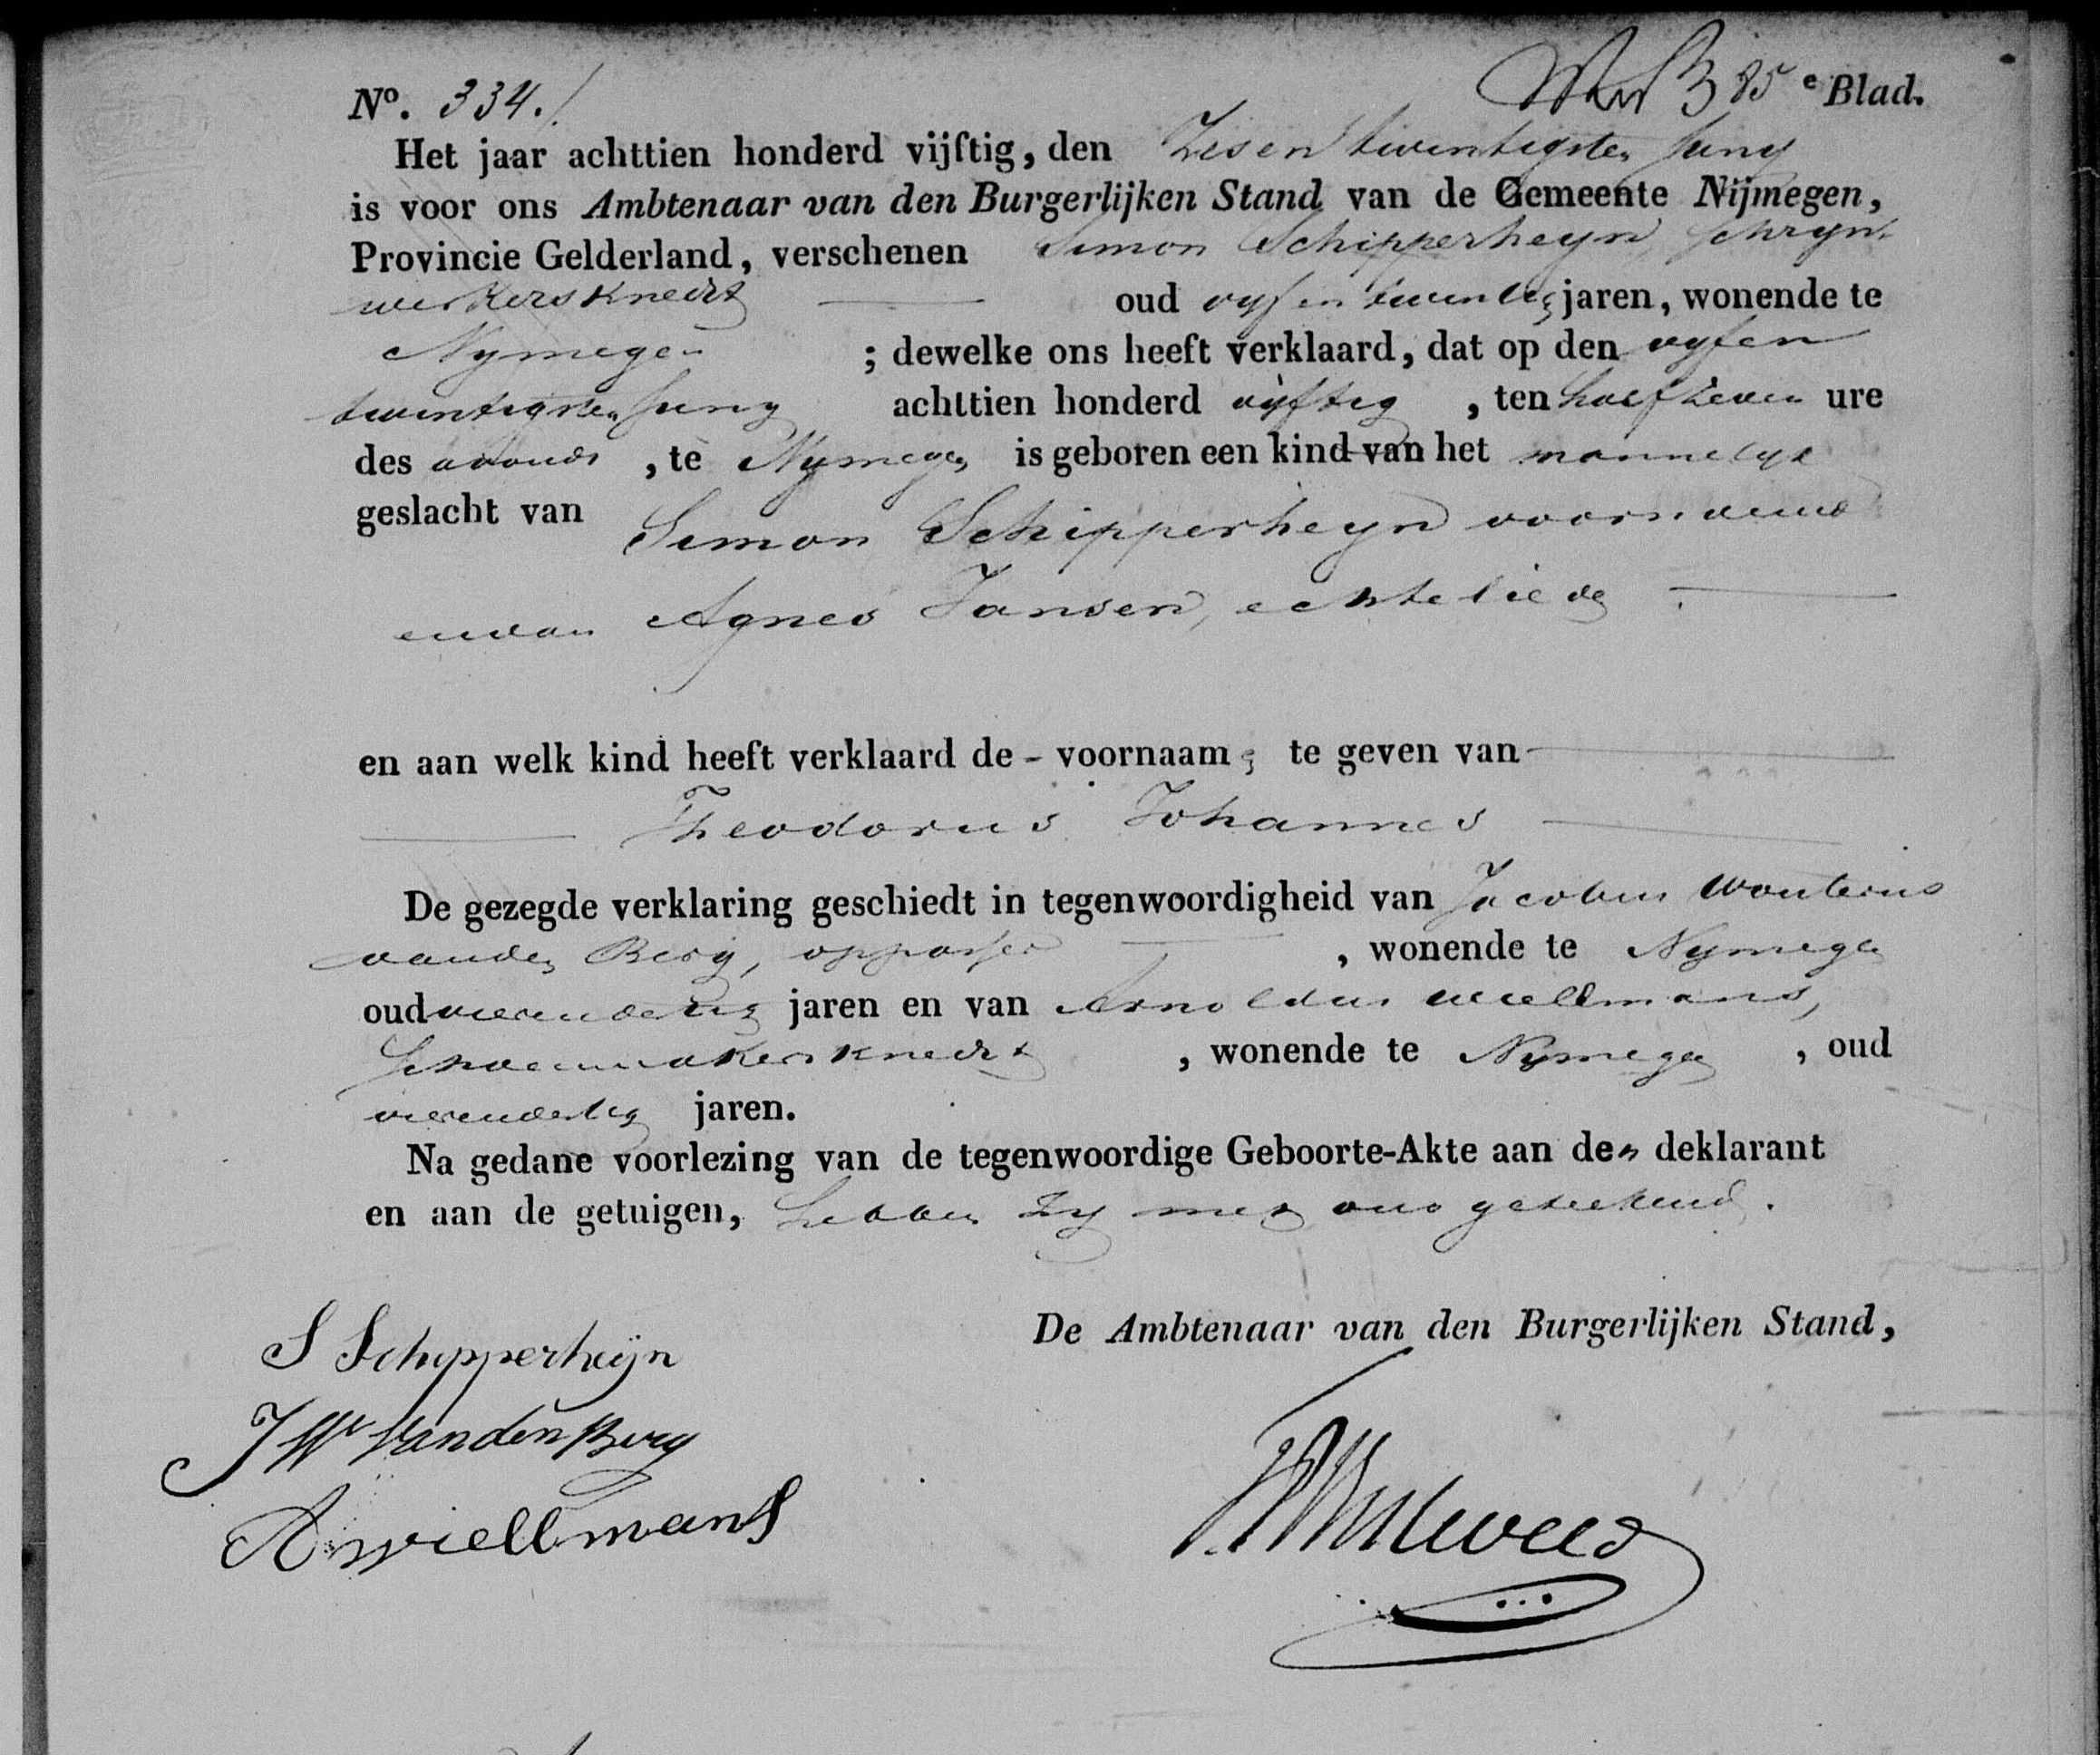 No. 334. 85e Blad.
Het jaar achttien honderd vijftig, den Zesentwintigsten Juny
is voor ons Ambtenaar van den Burgerlijken Stand van de Gemeente Nijmegen,
Provincie Gelderland, verschenen Simon Schipperheyn, schryn-
werkersknecht oud vyfentwintig jaren, wonende te
Nymegen ; dewelke ons heeft verklaard, dat op den vyfen
twintigsten Juny achttien honderd vyftig , ten half zeven ure
des avonds , te Nymegen is geboren een kind van het mannelyk
geslacht van Simon Schipperheyn voornoemd
en van Agnes Jansen, echtelieden
en aan welk kind heeft verklaard de - voornaam te geven van
Theodorus Johannes
De gezegde verklaring geschiedt in tegenwoordigheid van Jacobus Wouterus
van den Berg, oppasser , wonende te Nymegen
oud vierendertig jaren en van Arnoldus Wiellmans,
Schoenmakersknecht , wonende te Nymegen , oud
vierendertig jaren.
Na gedane voorlezing van de tegenwoordige Geboorte-Akte aan den deklarant
en aan de getuigen, hebben zy met ons geteekend.
De Ambtenaar van den Burgerlijken Stand,
S Schipperheijn
J W van den Berg
A wiellmans